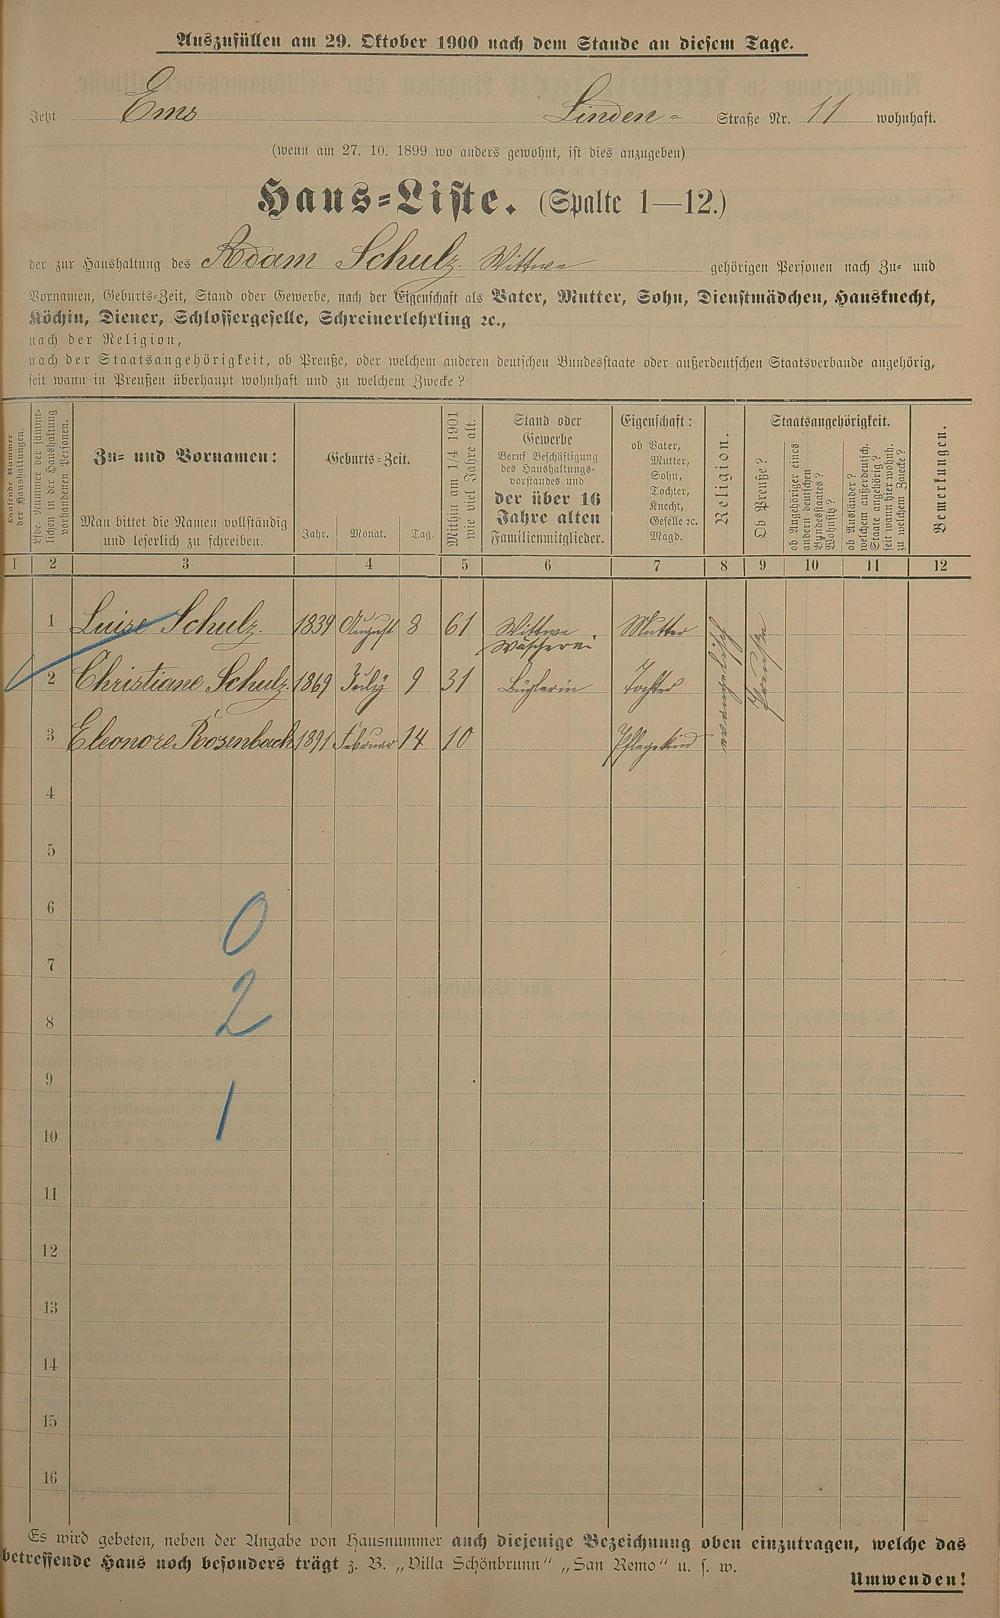 Auszufüllen am 29. Oktober 1900 nach dem Stande an diesem Tage.
Jetzt Ems Linden- Straße Nr. 11 wohnhaft.
(wenn am 27. 10. 1899 wo anders gewohnt, ist dies anzugeben)
Haus-Liste. (Spalte 1—12.)
der zur Haushaltung des Adam Schulz. Wittwe gehörigen Personen nach Zu- und
Vornamen, Geburts-Zeit, Stand oder Gewerbe, nach der Eigenschaft als Vater, Mutter, Sohn, Dienstmädchen, Hausknecht,
Köchin, Diener, Schlossergeselle, Schreinerlehrling ꝛc.,
nach der Religion,
nach der Staatsangehörigkeit, ob Preuße, oder welchem anderen deutschen Bundesstaate oder außerdeutschen Staatsverbande angehörig,
seit wann in Preußen überhaupt wohnhaft und zu welchem Zwecke?
Laufende Nummer
der Haushaltungen.
Lfde. Nummer der sämmt-
lichen in der Haushaltung
vorhandenen Personen.
Zu- und Vornamen:
Man bittet die Namen vollständig
und leserlich zu schreiben.
Geburts-Zeit.
Jahr. Monat. Tag.
Mithin am 1/4 1901
wie viel Jahre alt.
Stand oder
Gewerbe
Beruf Beschäftigung
des Haushaltungs-
vorstandes und
der über 16
Jahre alten
Familienmitglieder.
Eigenschaft:
ob Vater,
Mutter,
Sohn,
Tochter,
Knecht,
Geselle ꝛc.
Magd.
Religion.
Staatsangehörigkeit.
Ob Preuße?
ob Angehöriger eines
andern deutschen
Bundesstaates?
Wohnsitz?
ob Ausländer?
welchem außerdeutsch.
Staate angehörig?
seit wann hier wohnh.
zu welchem Zwecke?
Bemerkungen.
1 2 3 4 5 6 7 8 9 10 11 12
1 Luise Schulz. 1839 August 8 61 Wittwe Mutter
Wäscherei
2 Christiane Schulz. 1869 July 9 31 Büglerin Tochter
3 Eleonore Rosenbach 1891 Februar 14 10 Pflegekind
evangelisch
Preuße
4
5
6
0
7
2
8
9
1
10
11
12
13
14
15
16
Es wird gebeten, neben der Angabe von Hausnummer auch diejenige Bezeichnung oben einzutragen, welche das
betreffende Haus noch besonders trägt z. B. „Villa Schönbrunn“ „San Remo“ u. s. w.
Umwenden!